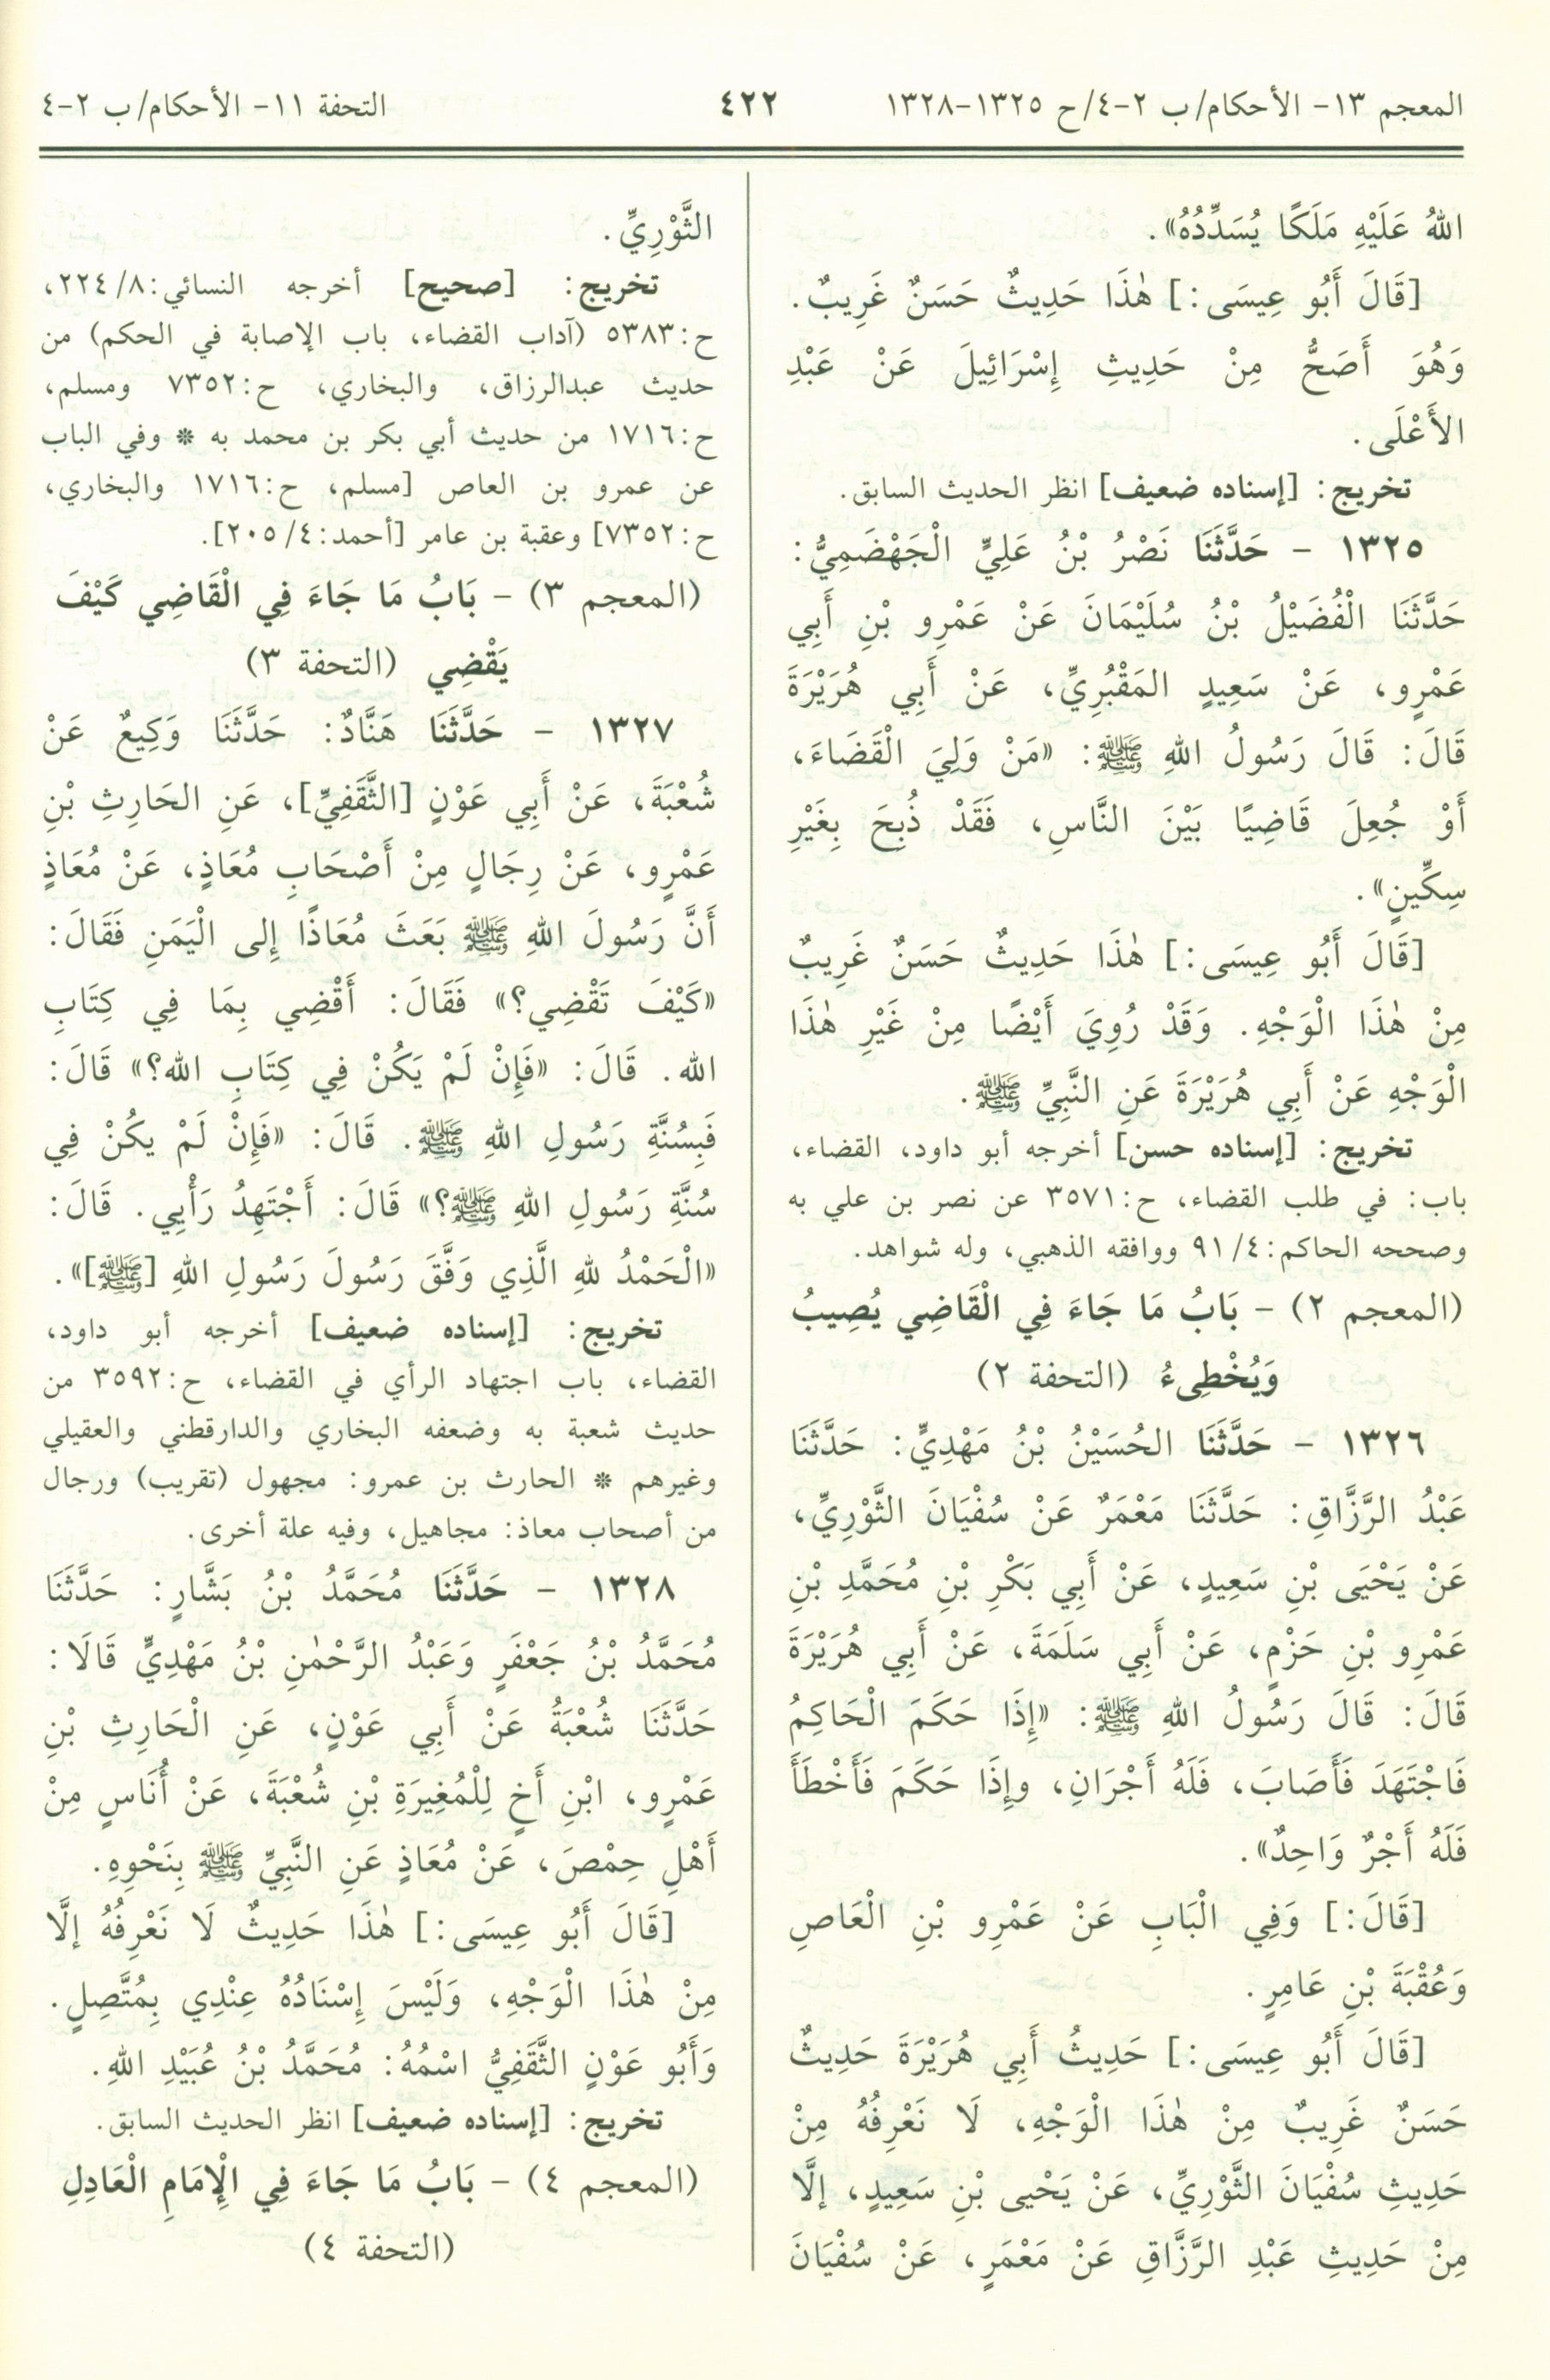 المعجم ١٣- الأحكام/ ب ٢-٤/ ح ١٣٢٥-١٣٢٨
٤٢٢
التحفة ١١- الأحكام/ ب ٢-٤
اللهُ عَلَيْهِ مَلَكًا يُسَدِّدُهُ».
[قَالَ أَبُو عِيسَى:] هٰذَا حَدِيثٌ حَسَنٌ غَرِيبٌ.
وَهُوَ أَصَحُّ مِنْ حَدِيثِ إِسْرَائِيلَ عَنْ عَبْدِ
الأَعْلَى.
تخريج: [إسناده ضعيف] انظر الحديث السابق.
١٣٢٥ - حَدَّثَنَا نَصْرُ بْنُ عَلِيٍّ الْجَهْضَمِيُّ:
حَدَّثَنَا الْفُضَيْلُ بْنُ سُلَيْمَانَ عَنْ عَمْرِو بْنِ أَبِي
عَمْرٍو، عَنْ سَعِيدٍ المَقْبُرِيِّ، عَنْ أَبِي هُرَيْرَةَ
قَالَ: قَالَ رَسُولُ اللهِ ﷺ: «مَنْ وَلِيَ الْقَضَاءَ،
أَوْ جُعِلَ قَاضِيًا بَيْنَ النَّاسِ، فَقَدْ ذُبِحَ بِغَيْرِ
سِكِّينٍ».
[قَالَ أَبُو عِيسَى:] هٰذَا حَدِيثٌ حَسَنٌ غَرِيبٌ
مِنْ هٰذَا الْوَجْهِ. وَقَدْ رُوِيَ أَيْضًا مِنْ غَيْرِ هٰذَا
الْوَجْهِ عَنْ أَبِي هُرَيْرَةَ عَنِ النَّبِيِّ ﷺ.
تخريج: [إسناده حسن] أخرجه أبو داود، القضاء،
باب: في طلب القضاء، ح:٣٥٧١ عن نصر بن علي به
وصححه الحاكم:٤/ ٩١ ووافقه الذهبي، وله شواهد.
(المعجم ٢) - بَابُ مَا جَاءَ فِي الْقَاضِي يُصِيبُ
وَيُخْطِىءُ (التحفة ٢)
١٣٢٦ - حَدَّثَنَا الحُسَيْنُ بْنُ مَهْدِيٍّ: حَدَّثَنَا
عَبْدُ الرَّزَّاقِ: حَدَّثَنَا مَعْمَرٌ عَنْ سُفْيَانَ الثَّوْرِيِّ،
عَنْ يَحْيَى بْنِ سَعِيدٍ، عَنْ أَبِي بَكْرِ بْنِ مُحَمَّدِ بْنِ
عَمْرِو بْنِ حَزْمٍ، عَنْ أَبِي سَلَمَةَ، عَنْ أَبِي هُرَيْرَةَ
قَالَ: قَالَ رَسُولُ اللهِ ﷺ: «إِذَا حَكَمَ الْحَاكِمُ
فَاجْتَهَدَ فَأَصَابَ، فَلَهُ أَجْرَانِ، وإِذَا حَكَمَ فَأَخْطَأَ
فَلَهُ أَجْرٌ وَاحِدٌ».
[قَالَ:] وَفِي الْبَابِ عَنْ عَمْرِو بْنِ الْعَاصِ
وَعُقْبَةَ بْنِ عَامِرٍ.
[قَالَ أَبُو عِيسَى:] حَدِيثُ أَبِي هُرَيْرَةَ حَدِيثٌ
حَسَنٌ غَرِيبٌ مِنْ هٰذَا الْوَجْهِ، لَا نَعْرِفُهُ مِنْ
حَدِيثِ سُفْيَانَ الثَّوْرِيِّ، عَنْ يَحْيى بْنِ سَعِيدٍ، إلَّا
مِنْ حَدِيثِ عَبْدِ الرَّزَّاقِ عَنْ مَعْمَرٍ، عَنْ سُفْيَانَ
الثَّوْرِيِّ.
تخريج: [صحيح] أخرجه النسائي:٨/ ٢٢٤،
ح:٥٣٨٣ (آداب القضاء، باب الإصابة في الحكم) من
حديث عبدالرزاق، والبخاري، ح:٧٣٥٢ ومسلم،
ح:١٧١٦ من حديث أبي بكر بن محمد به * وفي الباب
عن عمرو بن العاص [مسلم، ح:١٧١٦ والبخاري،
ح:٧٣٥٢] وعقبة بن عامر [أحمد:٤/ ٢٠٥].
(المعجم ٣) - بَابُ مَا جَاءَ فِي الْقَاضِي كَيْفَ
يَقْضِي (التحفة ٣)
١٣٢٧ - حَدَّثَنَا هَنَّادٌ: حَدَّثَنَا وَكِيعٌ عَنْ
شُعْبَةَ، عَنْ أَبِي عَوْنٍ [الثَّقَفِيِّ]، عَنِ الحَارِثِ بْنِ
عَمْرٍو، عَنْ رِجَالٍ مِنْ أَصْحَابِ مُعَاذٍ، عَنْ مُعَاذٍ
أَنَّ رَسُولَ اللهِ ﷺ بَعَثَ مُعَاذًا إِلى الْيَمَنِ فَقَالَ:
«كَيْفَ تَقْضِي؟» فَقَالَ: أَقْضِي بِمَا فِي كِتَابِ
الله. قَالَ: «فَإِنْ لَمْ يَكُنْ فِي كِتَابِ الله؟» قَالَ:
فَبِسُنَّةِ رَسُولِ اللهِ ﷺ. قَالَ: «فَإِنْ لَمْ يكُنْ فِي
سُنَّةِ رَسُولِ اللهِ ﷺ؟» قَالَ: أَجْتَهِدُ رَأْيِي. قَالَ:
«الْحَمْدُ للهِ الَّذِي وَفَّقَ رَسُولَ رَسُولِ اللهِ [ﷺ]».
تخريج: [إسناده ضعيف] أخرجه أبو داود،
القضاء، باب اجتهاد الرأي في القضاء، ح:٣٥٩٢ من
حديث شعبة به وضعفه البخاري والدارقطني والعقيلي
وغيرهم * الحارث بن عمرو: مجهول (تقريب) ورجال
من أصحاب معاذ: مجاهيل، وفيه علة أخرى.
١٣٢٨ - حَدَّثَنَا مُحَمَّدُ بْنُ بَشَّارٍ: حَدَّثَنَا
مُحَمَّدُ بْنُ جَعْفَرٍ وَعَبْدُ الرَّحْمٰنِ بْنُ مَهْدِيٍّ قَالَا:
حَدَّثَنَا شُعْبَةُ عَنْ أَبِي عَوْنٍ، عَنِ الْحَارِثِ بْنِ
عَمْرٍو، ابْنِ أَخٍ لِلْمُغِيرَةِ بْنِ شُعْبَةَ، عَنْ أُنَاسٍ مِنْ
أَهْلِ حِمْصَ، عَنْ مُعَاذٍ عَنِ النَّبِيِّ ﷺ بِنَحْوِهِ.
[قَالَ أَبُو عِيسَى:] هٰذَا حَدِيثٌ لَا نَعْرِفُهُ إلَّا
مِنْ هٰذَا الْوَجْهِ، وَلَيْسَ إِسْنَادُهُ عِنْدِي بِمُتَّصِلٍ.
وَأَبُو عَوْنٍ الثَّقَفِيُّ اسْمُهُ: مُحَمَّدُ بْنُ عُبَيْدِ اللهِ.
تخريج: [إسناده ضعيف] انظر الحديث السابق.
(المعجم ٤) - بَابُ مَا جَاءَ فِي الْإِمَامِ الْعَادِلِ
(التحفة ٤)